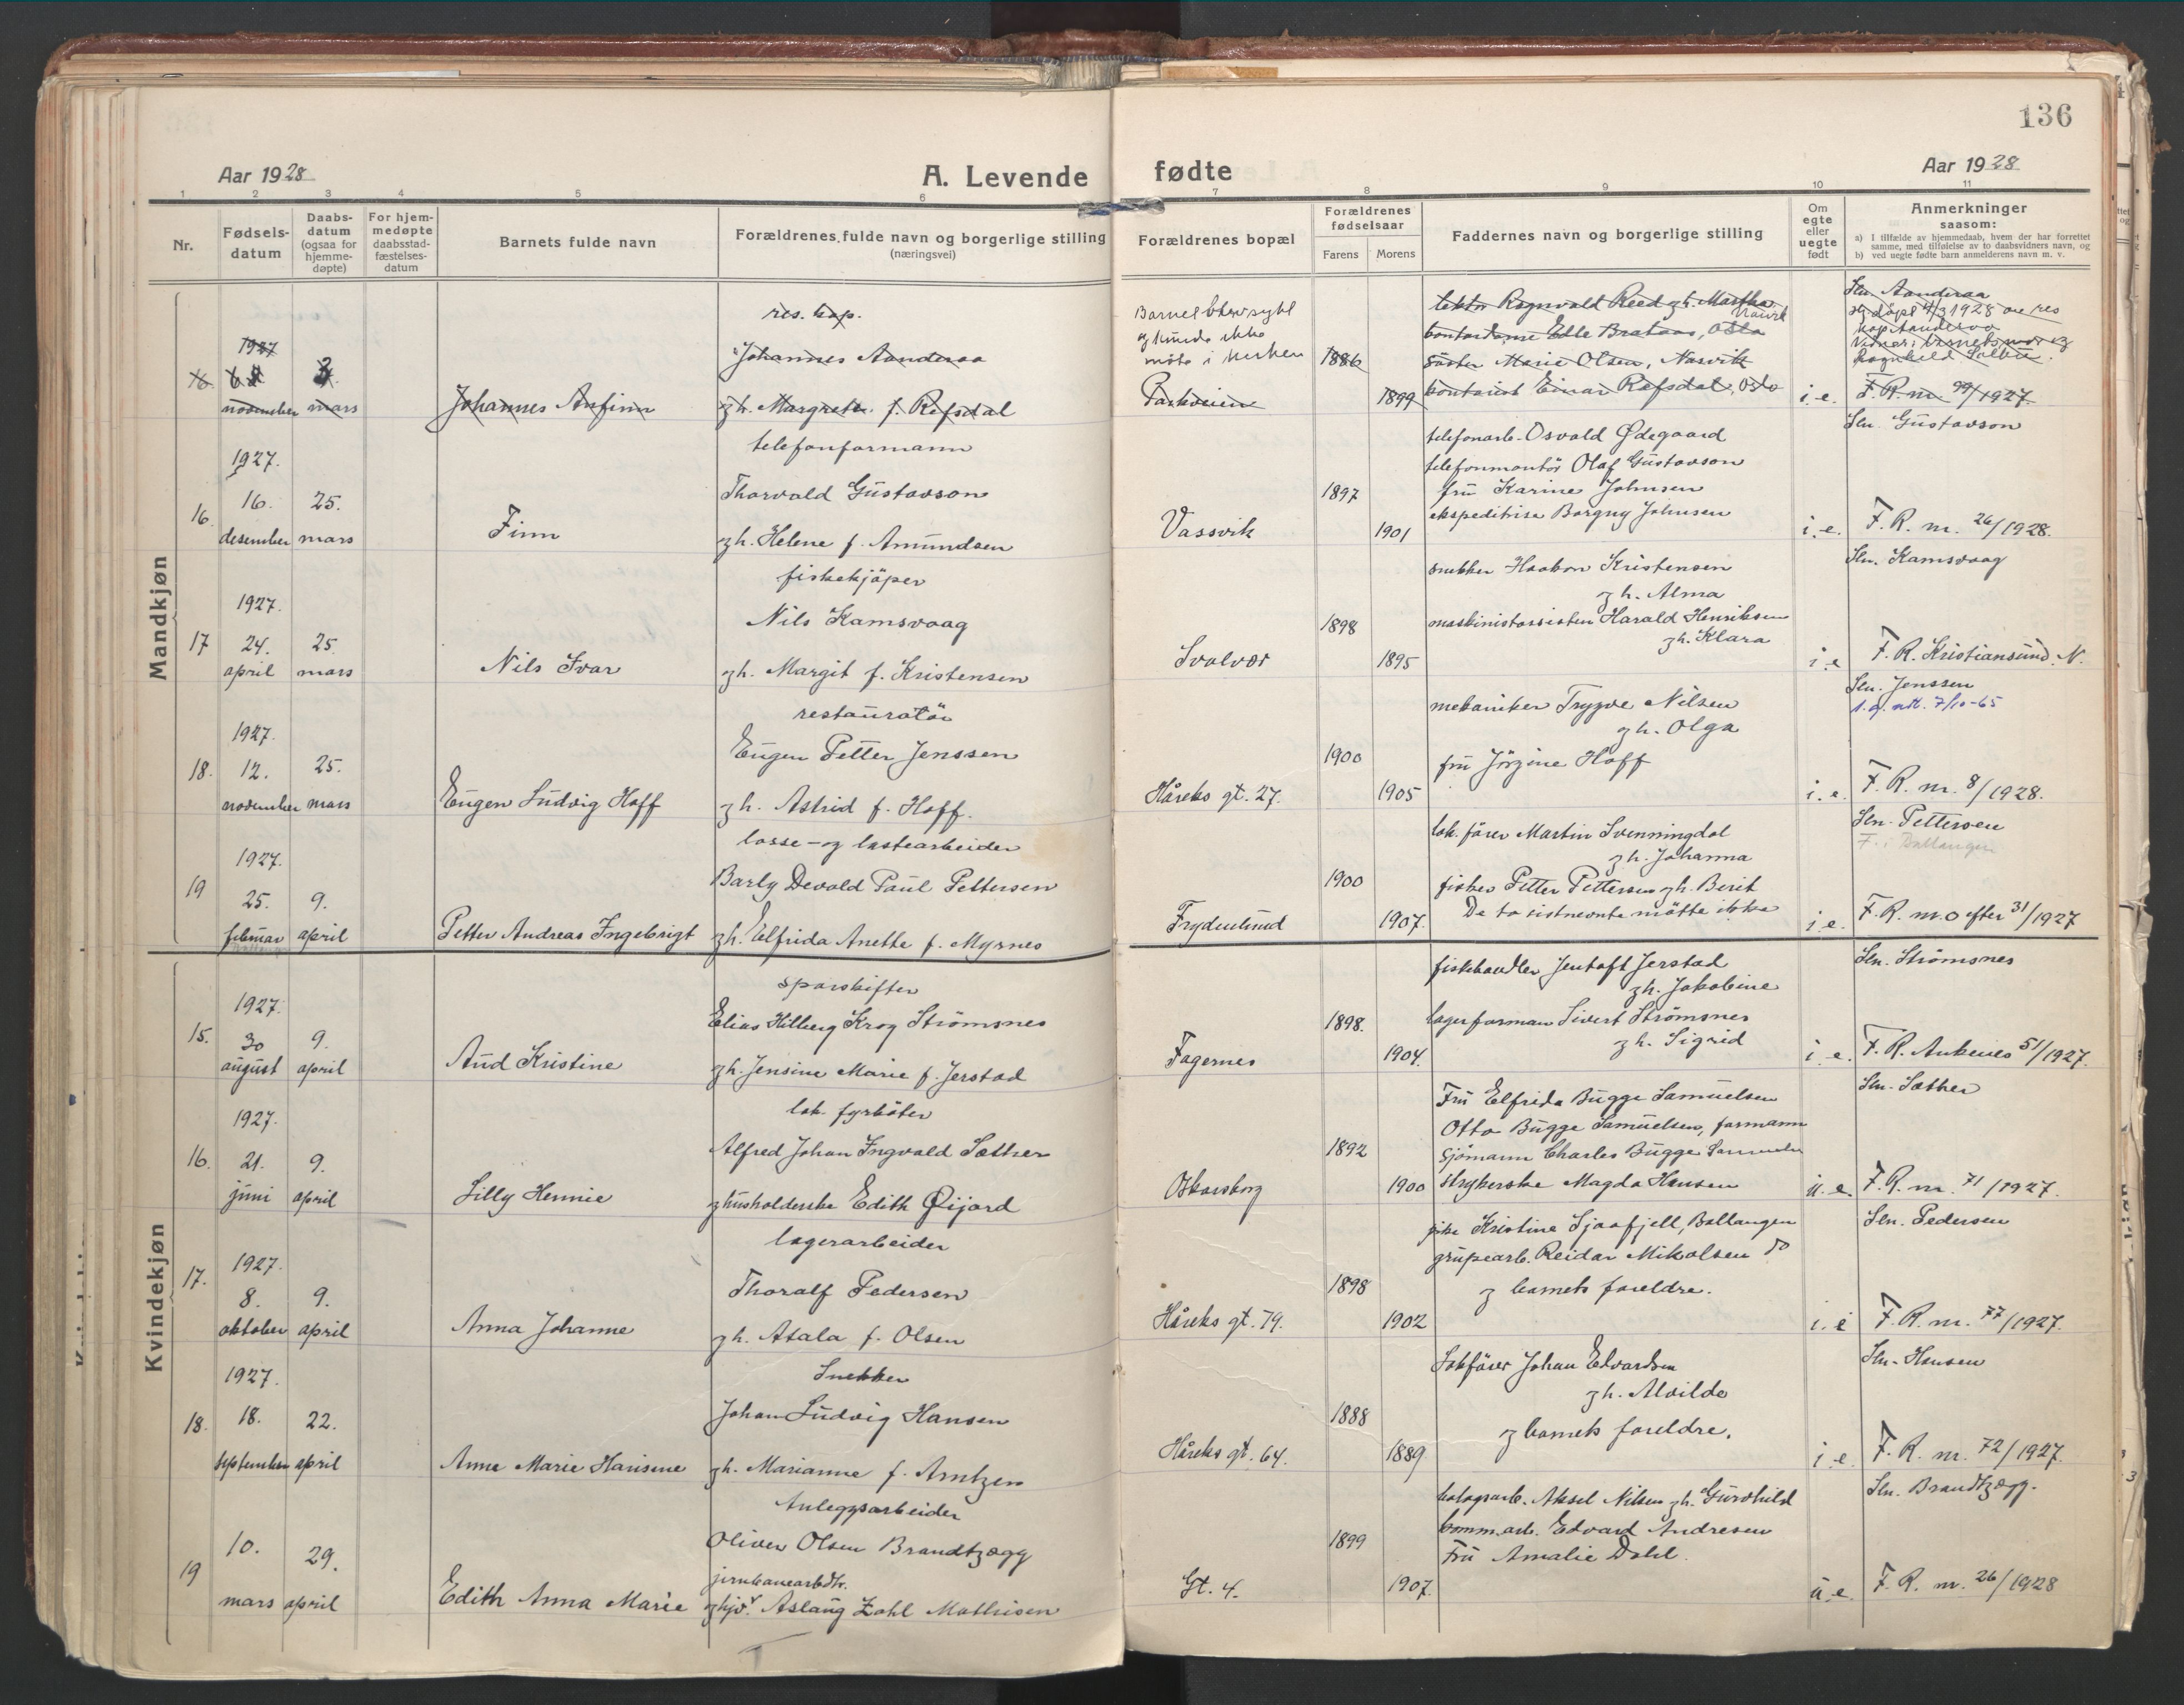 136
Aar 1928
A. Levende
fødte
Aar 1928
1 2 3 4 5 6 7 8 9 10 11
Nr.
Fødselsdatum
Daabsdatum (ogsaa for hjemmedøpte)
For hjemmedøpte daabsstadfæstelsesdatum
Barnets fulde navn
Forældrenes fulde navn og borgerlige stilling
(næringsvei)
Forældrenes bopæl
Forældrenes fødselsaar
Farens Morens
Faddernes navn og borgerlige stilling
Om egte eller uegte født
Anmerkninger
saasom:
a) I tilfælde av hjemmedaab, hvem der har forrettet
samme, med tilføielse av to daabsvidners navn, og
b) ved uegte fødte barn anmelderens navn m. v.
Mandkjøn
res. kap.
1927
Johannes Aanderaa
16
november mars
Johannes Anfinn
gh. Margrete f. Refsdal
og kunde ikke
møte i kirken
Parkveien
1886
1899
lektor Ragnvald Reed gh. Martha
Narvik
kontordame Elle Brataas, Oslo
søster Marie Olsen, Narvik
kontorist Einar Refsdal, Oslo
i.e.
Sln. Aanderaa
F. R. nr. 99/1927
telefonformann
1927.
16. 16. 25.
desember mars
Finn
Thorvald Gustavson
gh. Helene f. Amundsen
Vassvik
1897
1901
telefonarb. Osvald Ødegaard
telefonmontör Olaf Gustavson
fru Karine Johnsen
ekspeditrise Borgny Johnsen
i.e.
Sln. Gustavson
F. R. nr. 26/1928.
fiskekjöper
1927.
17 24. 25.
april mars
Nils Ivar
Nils Kamsvaag
gh. Margit f. Kristensen
Svolvær
1898
1895
snekker Haakon Kristensen
gh. Alma
maskinistassisten Harald Henriksen
gh. Klara
i.e
Sln. Kamsvaag
F. R. Kristiansund. N.
restauratör
1927.
18. 12. 25.
november mars
Eugen Ludvig Hoff
Eugen Petter Jenssen
gh. Astrid f. Hoff.
Håreks gt. 27.
1900
1905
mekaniker Trygve Nilsen
gh. Olga
fru Jörgine Hoff
i.e.
Sln. Jenssen
7/10-65
F. R. nr. 8/1928.
losse- og lastearbeider
1927.
19 25. 9.
februar april
Petter Andreas Ingebrigt
Barly Devold Paul Pettersen
gh. Elfrida Anette f. Myrnes
Frydenlund
1900
1907.
lok. fører Martin Svenningdal
gh. Johanna
fisker Petter Pettersen gh. Berit
De to sistnevnte mötte ikke
i.e.
Sln. Pettersen
F. i Ballangen
F. R. nr. 0 efter 31/1927
Kvindekjøn
sporskifter
1927.
15. 30 9.
august april
Aud Kristine
Elias Hilberg Krog Strömsnes
gh. Jensine Marie f. Jerstad
Fagernes
1898.
1904.
fiskehandler Jentoft Jerstad
gh. Jakobine
lagerforman Sivert Strömsnes
gh. Sigrid
i.e.
Sln. Strömsnes
F. R. Ankenes 51/1927.
lok. fyrböter
1927.
16. 21. 9.
juni april
Lilly Hennie
Alfred Johan Ingvald Sæther
g husholderske Edith Øijord
Oskarsborg
1892
1900
Fru Elfrida Bugge Samuelsen
Otto Bugge Samuelsen, formann
Sjömann Charles Bugge Samuelsen
Strykerske Magda Hansen
u.e.
Sln. Sæther
F. R. nr. 71/1927.
lagerarbeider
1927.
17. 8. 9.
oktober april
Anna Johanne
Thoralf Pedersen
gh. Atala f. Olsen
Håreks gt. 79.
1898
1902
pike Kristine Sjaafjell, Ballangen
grupearb. Reidar Mikalsen do
g barnets foreldre.
i.e
Sln. Pedersen
F. R. nr. 77/1927.
Snekker
1927.
18. 18. 22.
september april
Anne Marie Hansine
Johan Ludvig Hansen
gh. Marianne f. Arntzen
Håreks gt. 64.
1888
1889
Lokförer Johan Edvardsen
gh. Alvilde
g barnets foreldre.
i.e.
Sln. Hansen
F. R. nr. 72/1927.
Anleggsarbeider
19 10. 29.
mars april
Edith Anna Marie
Oliver Olsen Brandtzægg
jernbanearbdtr.
g hjv. Aslaug Zahl Mathisen
Gt. 4.
1899
1907.
Aksel Nilsen gh. Gurdhild
komm.arb. Edvard Andresen
Fru Amalie Dahl.
u.e.
Sln. Brandtzægg.
F. R. nr. 26/1928